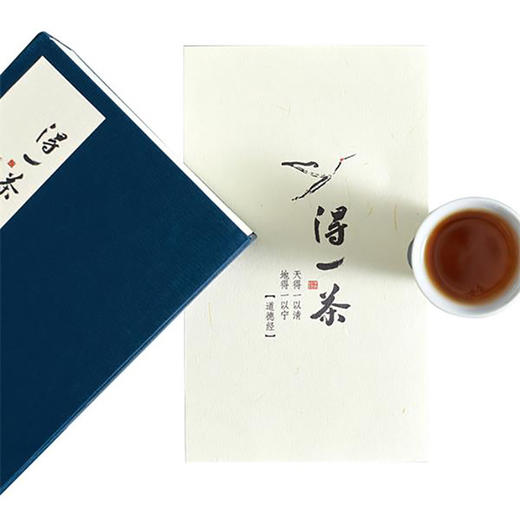 得一茶
得一茶
天得一以清
地得一以宁
【道德经】